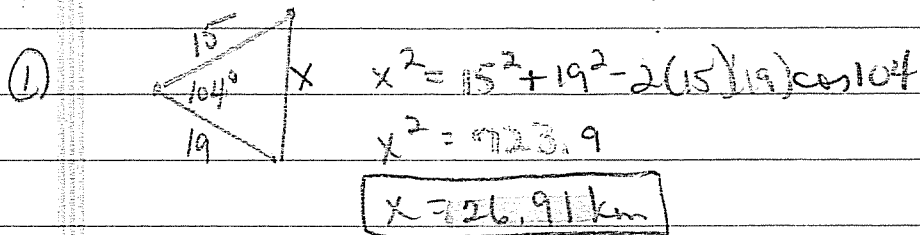 ① 15 104° 19 x x² = 15² + 19² - 2(15)(19)cos104
x² = 723.9
x = 26.91 km